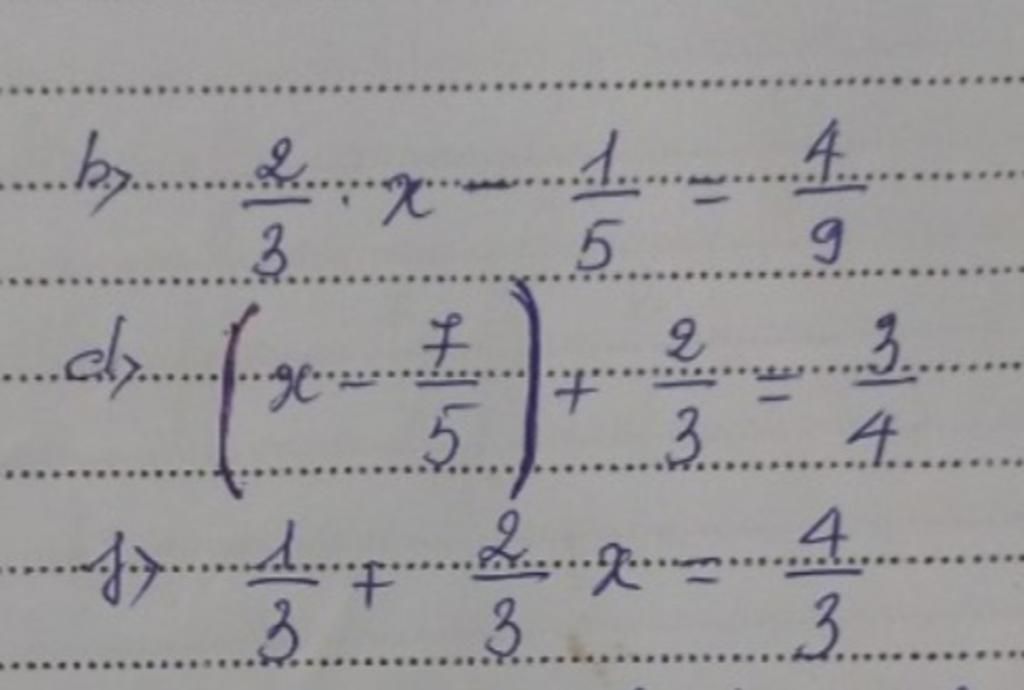 b> 2/3 . x - 1/5 = 4/9
d> (x - 7/5) + 2/3 = 3/4
f> 1/3 + 2/3 x = 4/3